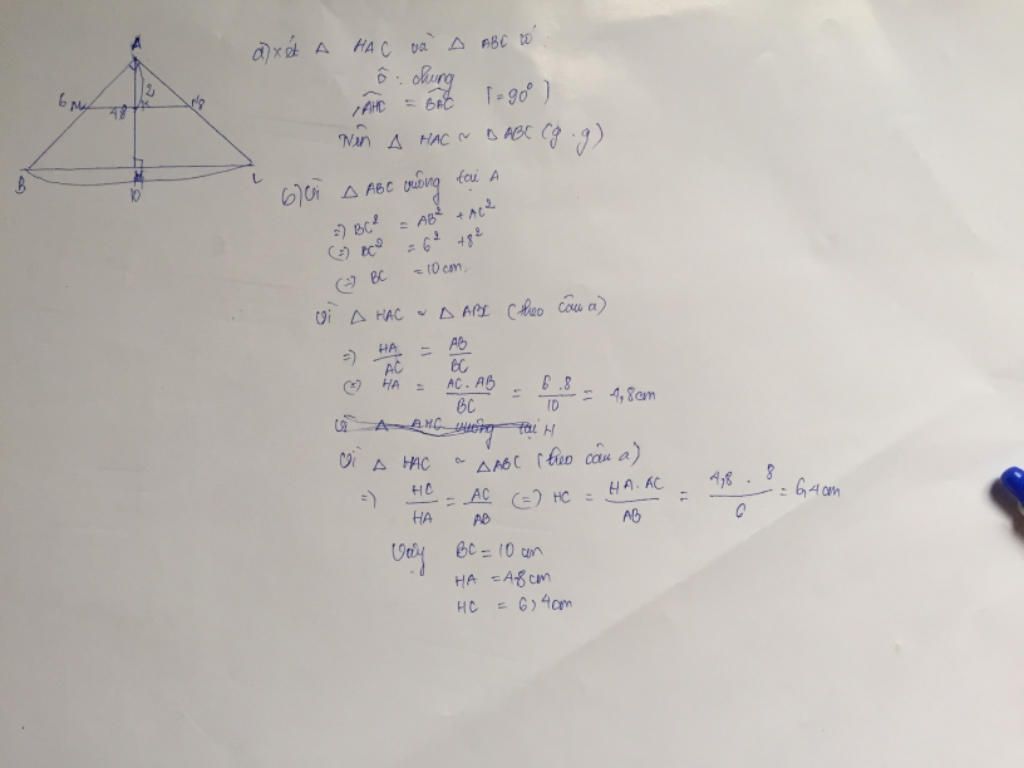 A
6 M
2
K
N 8
4,8
B
H
C
10
a) xét △ HAC và △ ABC có
Ĉ : chung
AHC = BAC (=90°)
Nên △ HAC ~ △ ABC (g.g)
b) Vì △ ABC vuông tại A
=) BC² = AB² + AC²
(=) BC² = 6² + 8²
(=) BC = 10 cm.
Vì △ HAC ~ △ ABC (theo câu a)
=) HA/AC = AB/BC
(=) HA = AC . AB/BC = 6 . 8/10 = 4,8cm
Vì △ AHC vuông tại H
Vì △ HAC ~ △ ABC (theo câu a)
=) HC/HA = AC/AB (=) HC = HA . AC/AB = 4,8 . 8/6 = 6,4cm
Vậy BC = 10 cm
HA = 4,8cm
HC = 6,4cm